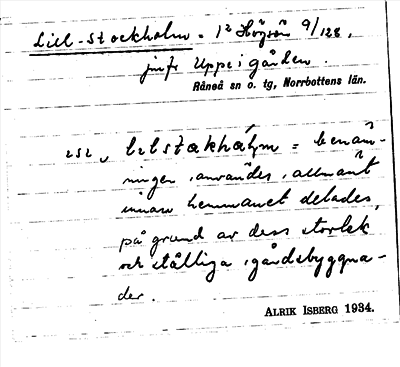 Lill-Stockholm = 12 Högsön 9/128.
jmfr Uppe i gården.
Råneå sn o. tg, Norrbottens län.
252 lilstækhålm = benäm-
ningen användes allmänt
innan hemmanet delades,
på grund av dess storlek
och ståtliga gårdsbyggna-
der.
ALRIK ISBERG 1934.